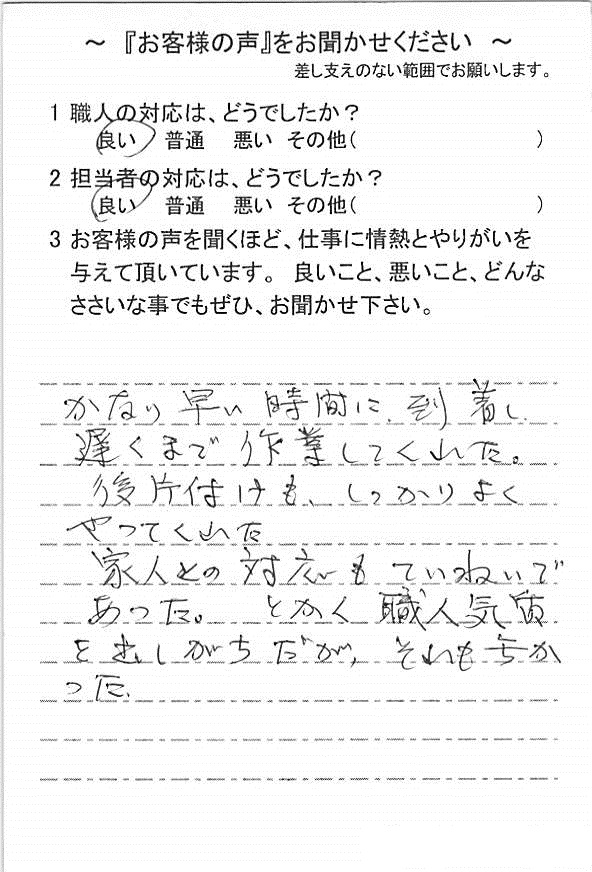 ～ 『お客様の声』をお聞かせください ～
差し支えのない範囲でお願いします。
1 職人の対応は、どうでしたか？
良い 普通 悪い その他( )
2 担当者の対応は、どうでしたか？
良い 普通 悪い その他( )
3 お客様の声を聞くほど、仕事に情熱とやりがいを
与えて頂いています。 良いこと、悪いこと、どんな
ささいな事でもぜひ、お聞かせ下さい。
かなり早い時間に、到着し
遅くまで作業してくれた。
後片付けも、しっかりよく
やってくれた
家人との対応もていねいで
あった。 とかく職人気質
を出しがちだが、それも
った。